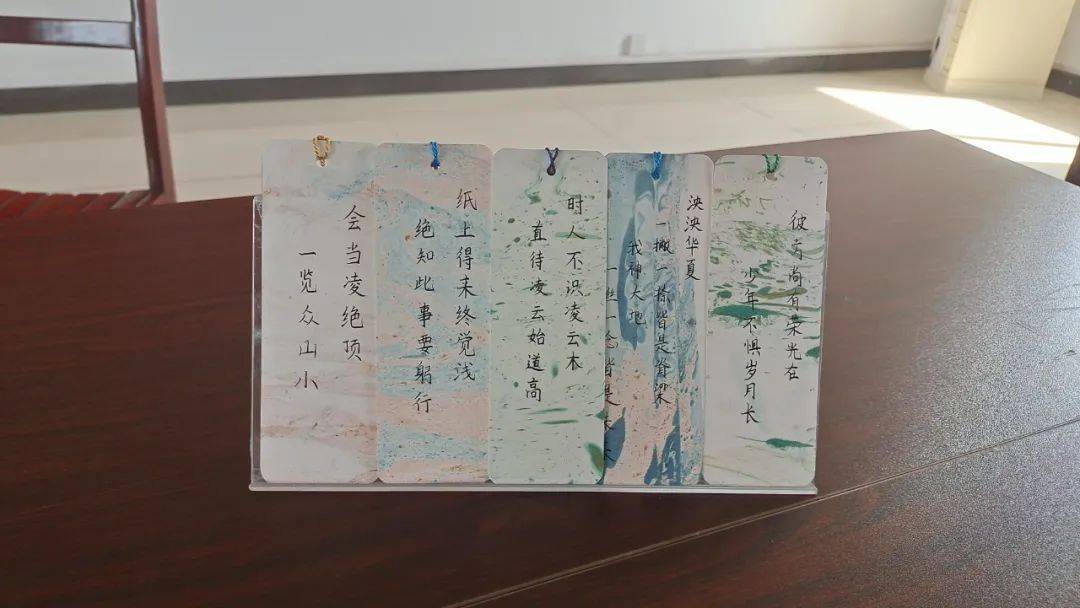 会当凌绝顶
一览众山小
纸上得来终觉浅
绝知此事要躬行
时人不识凌云木
直待凌云始道高
泱泱华夏
一撇一捺皆是脊梁
我神大地
彼方尚有荣光在
少年不惧岁月长